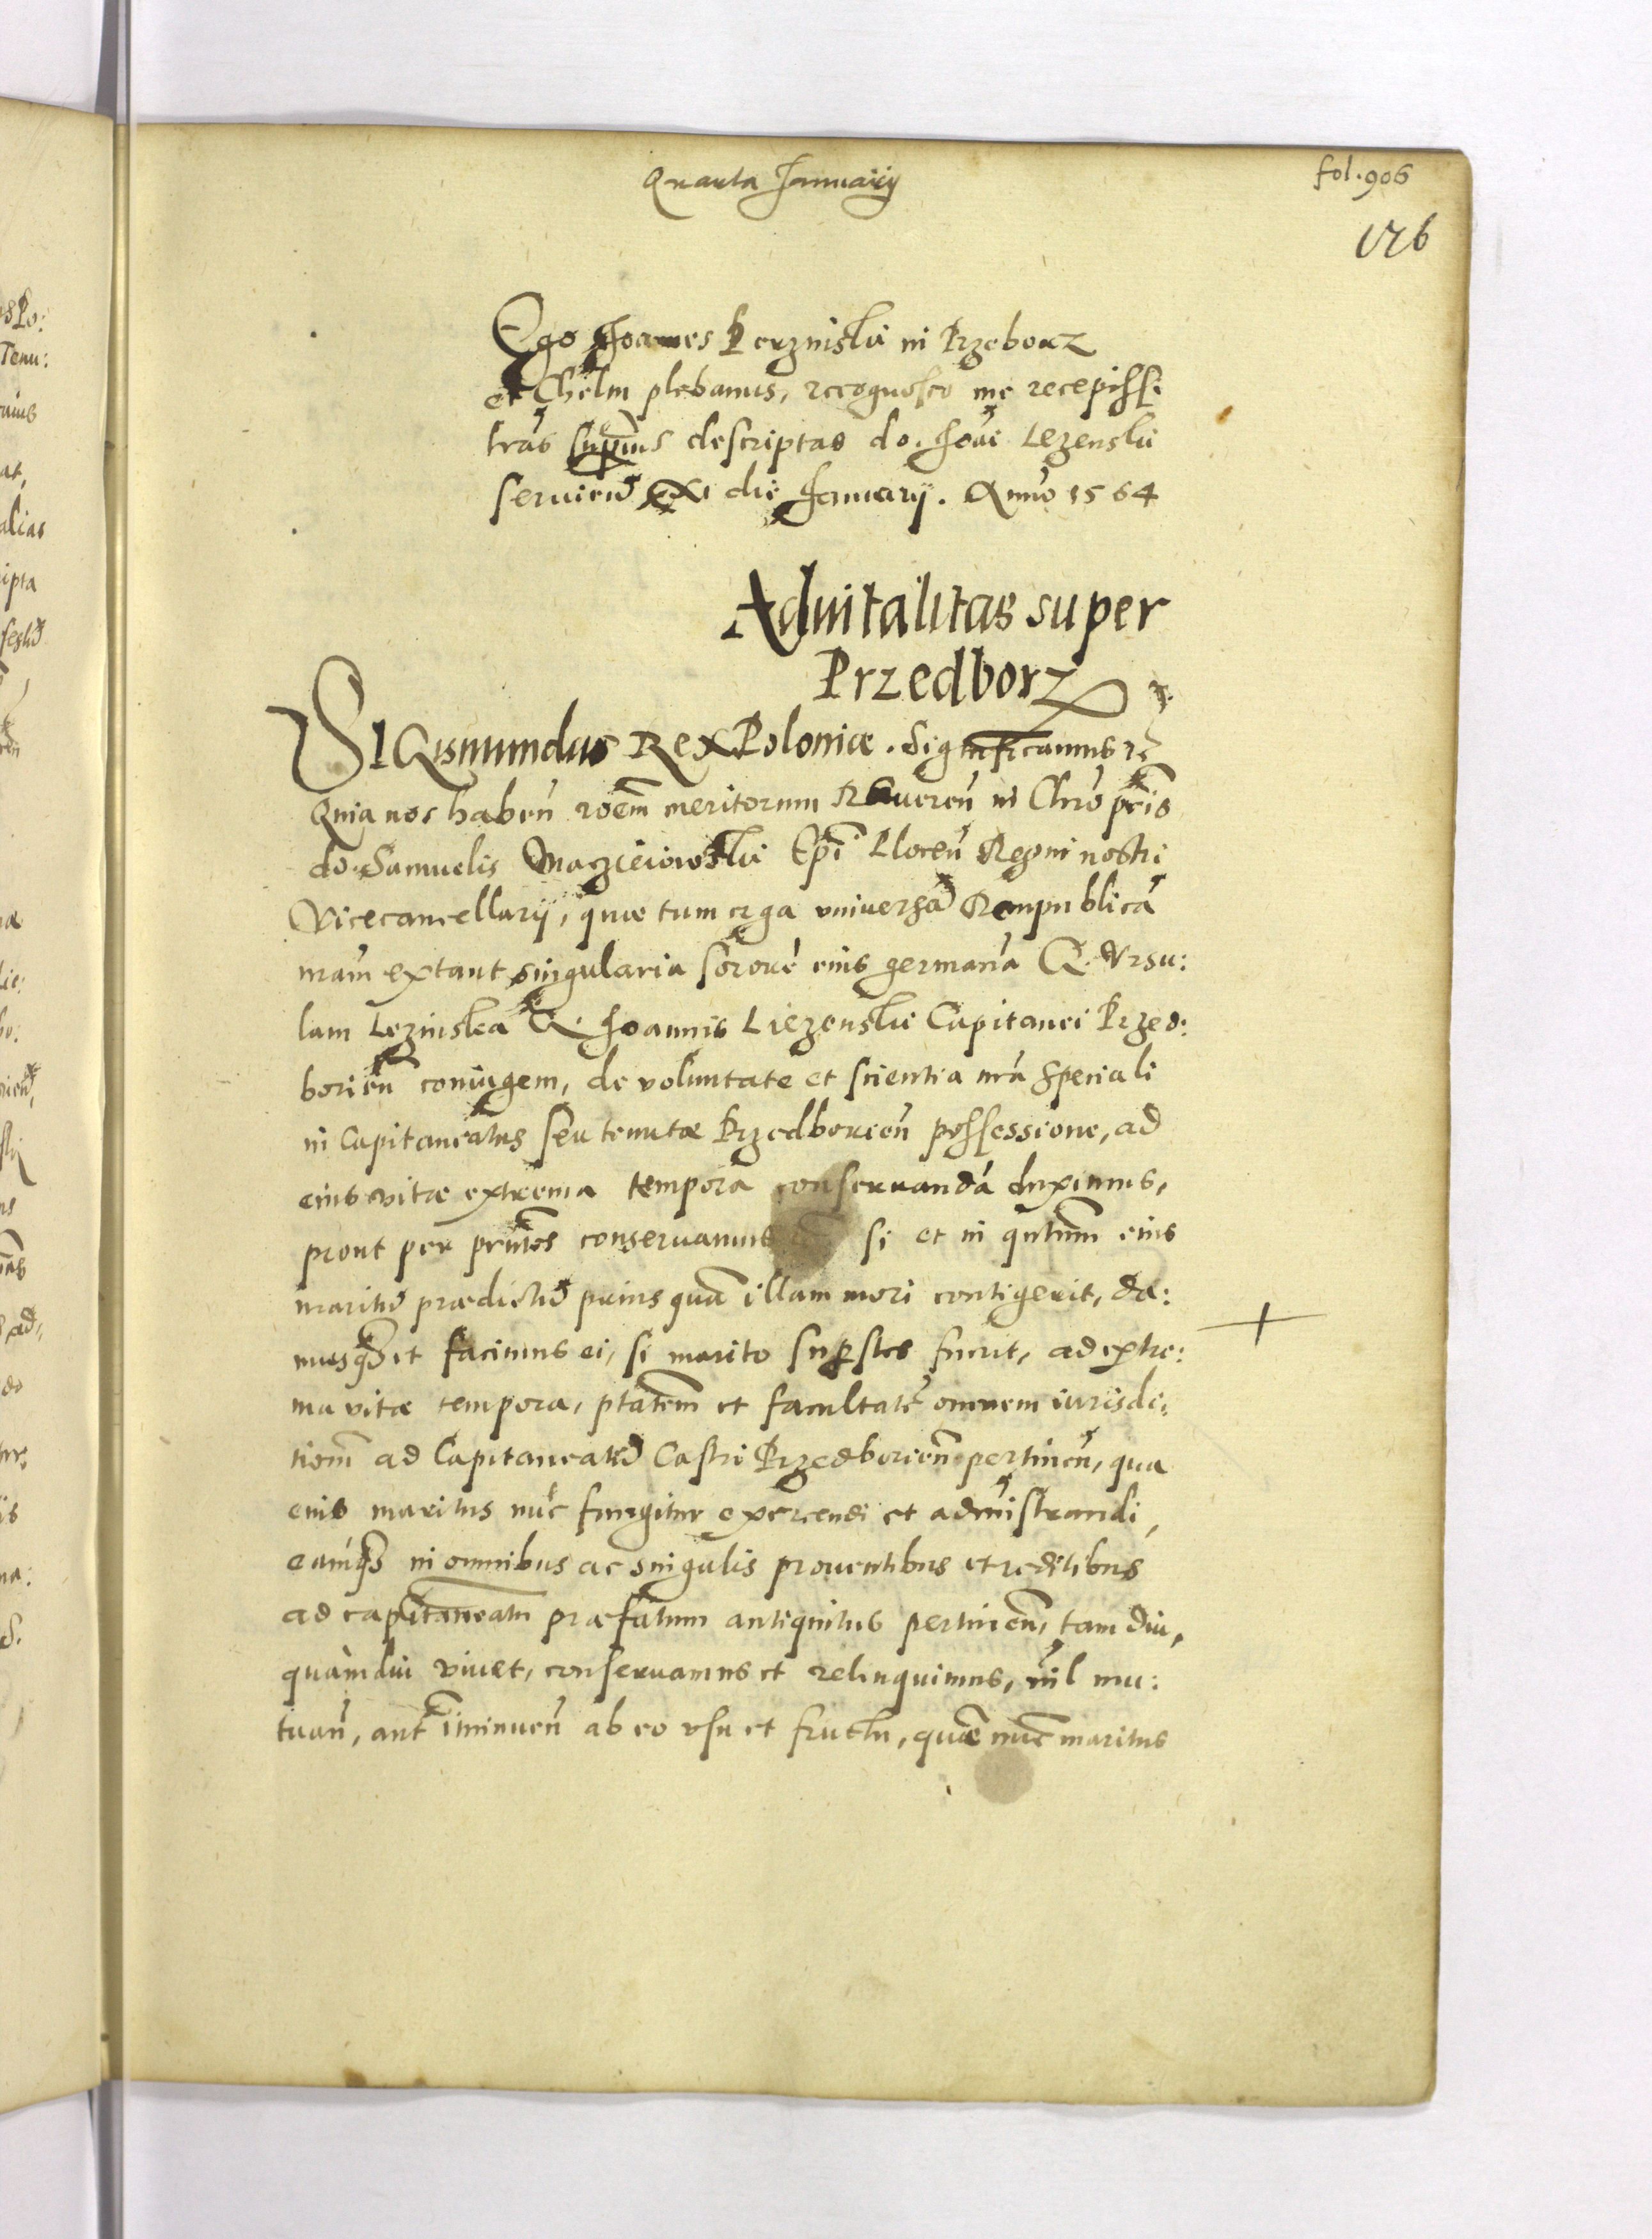 Quarta Januarij
fol. 906
176
Ego Joannes Kerzniski in Przeborz
et Chelm plebanus, recognosco me recepisse
lrās supius descriptas do. Joāi Lezenski
serviend XI die Januarij. Anno 1564
Advitalitas super
Przedborz
SIGismundus Rex Poloniæ. Significamus rc
Quia nos haben̄ roēm meritorum Reveren̄ in Chrō pr̄is
do. Samuelis Maczieiowski Epī Plocen̄ Regni nostri
Vicecancellarij, quæ tum erga universā Rempublicā
nrām extant singularia sororē eius germanā G. Ursu:
lam Lezinska G. Joannis Liezenski Capitanei Przed:
borien̄ coniugem, de voluntate et scientia nrā speciali
in Capitaneatus seu tenutæ Przedborien̄ possessione, ad
eius vitæ extrema tempora conservandā duximus,
prout per prn̄tes conservamus si et in qntum eius
maritū prædictū prius quā illam mori contigerit, da:
musq̄ et facimus ei, si marito supstes fuerit, ad extre:
ma vitæ tempora, ptātem et facultatē omnem iurisdi:
tiom̄ ad Capitaneatū Castri Przedborien̄ pertinen̄, qua
eius maritus nūc fungitur exercendi et admistrandi,
eamq̄ in omnibus ac singulis proventibus et reditibus
ad capitaneatū præfatum antiquitus pertinen̄, tam diu,
quàmdiu vivet, conservamus et relinquimus, nil mu:
tuan̄, aut iminuen̄ ab eo usu et fructu, quē nūc maritus